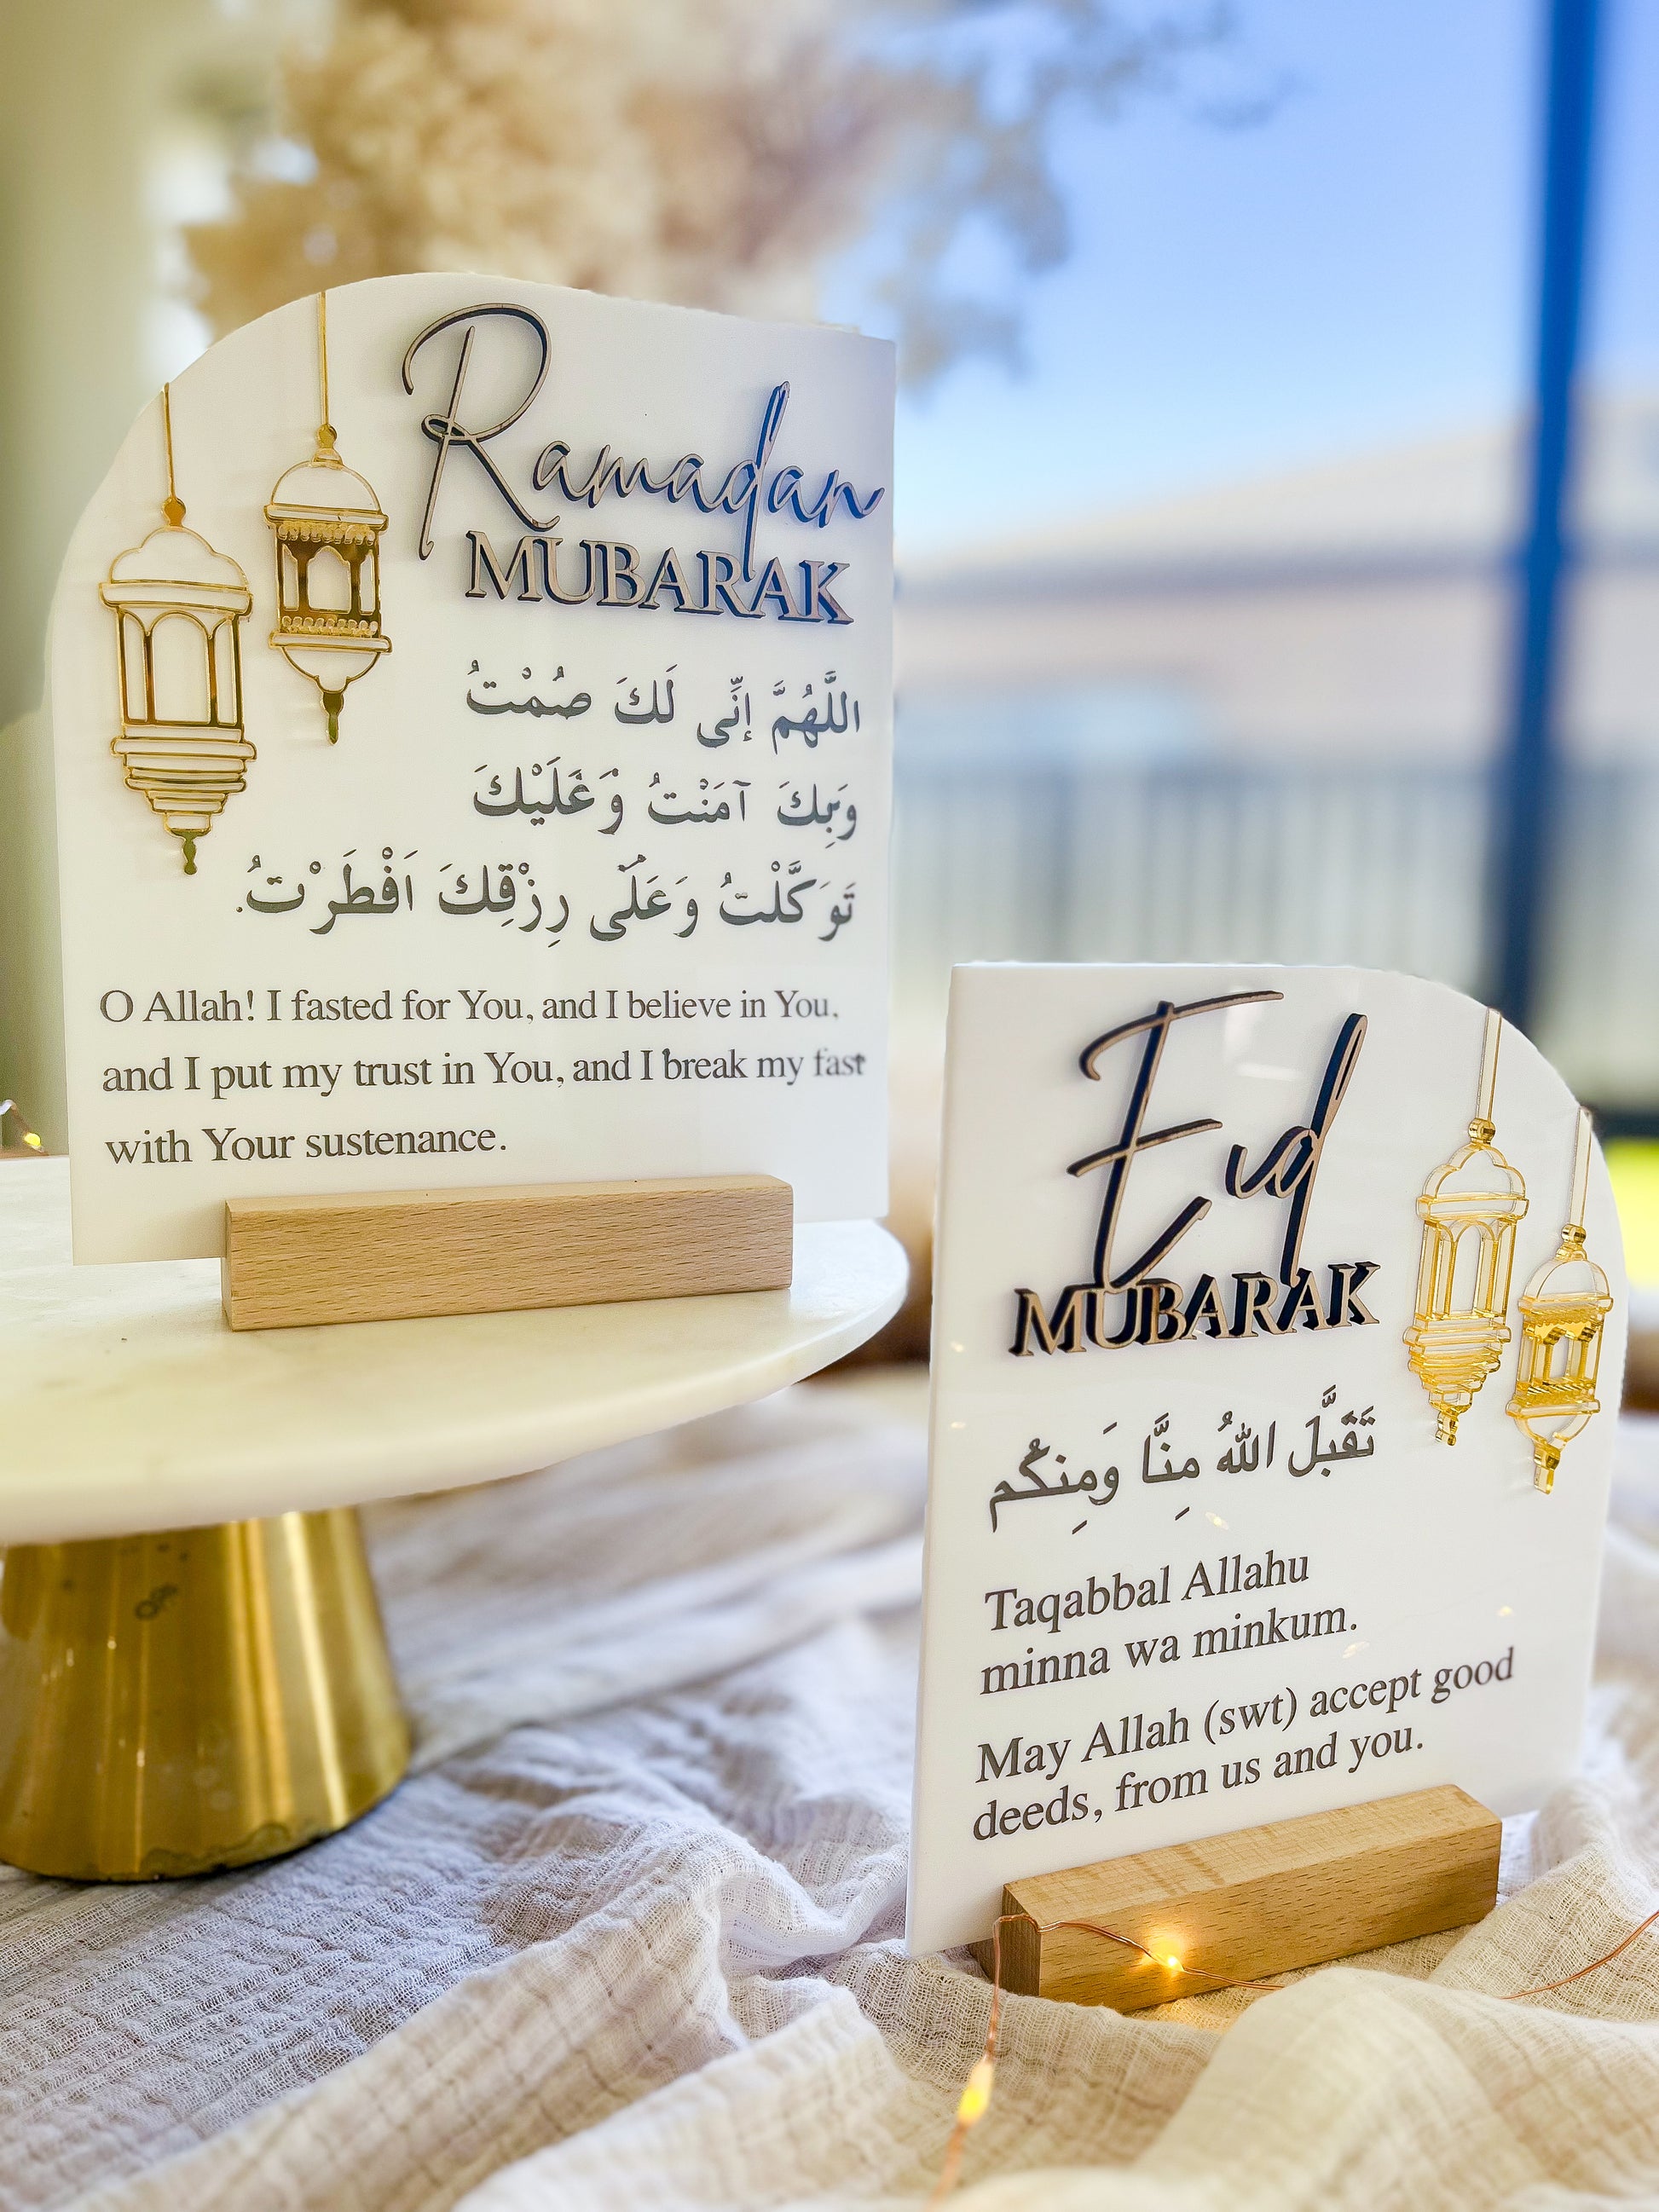 Ramadan
MUBARAK
اللَّهُمَّ إنِّى لَكَ صُمْتُ
وَبِكَ آمَنْتُ وَْغَلَيْكَ
تَوَكَّلْتُ وَعَلَى رِزْقِكَ اَفْطَرْتُ.
O Allah! I fasted for You, and I believe in You,
and I put my trust in You, and I break my fast
with Your sustenance.
Eid
MUBARAK
تَقَبَّلَ اللهُ مِنَّا وَمِنكُم
Taqabbal Allahu
minna wa minkum.
May Allah (swt) accept good
deeds, from us and you.